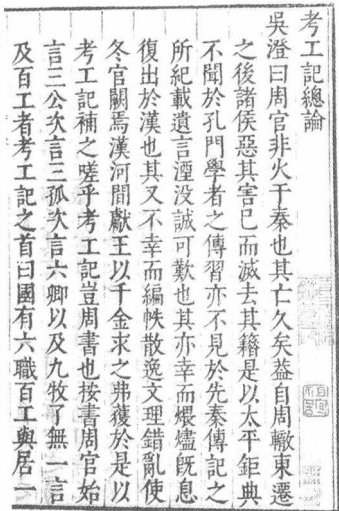 考工記總論
吳澄曰周官非火于秦也其亡久矣葢自周轍東遷
之後諸侯惡其害已而滅去其籍是以太平鉅典
不聞於孔門學者之傳習亦不見於先秦傳記之
所紀載遺言湮没誠可歎也其亦幸而煨燼旣息
復出於漢也其又不幸而編帙散逸文理錯亂使
冬官闕焉漢河間獻王以千金求之弗獲於是以
考工記補之嗟乎考工記豈周書也按書周官始
言三公次言三孤次言六卿以及九牧了無一言
及百工者考工記之首曰國有六職百工與居一